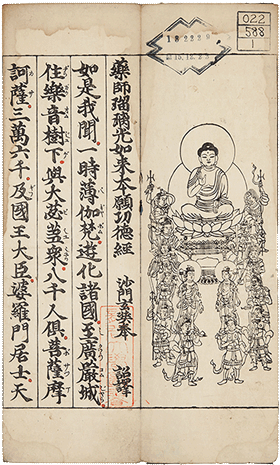 022
588
1
182229
15.12.23
藥師瑠璃光如來本願功德經　沙門玄奘奉　詔譯
如是我聞一時薄伽梵遊化諸國至廣嚴城
住樂音樹下與大苾芻衆八千人俱菩薩摩
訶薩三萬六千及國王大臣婆羅門居士天